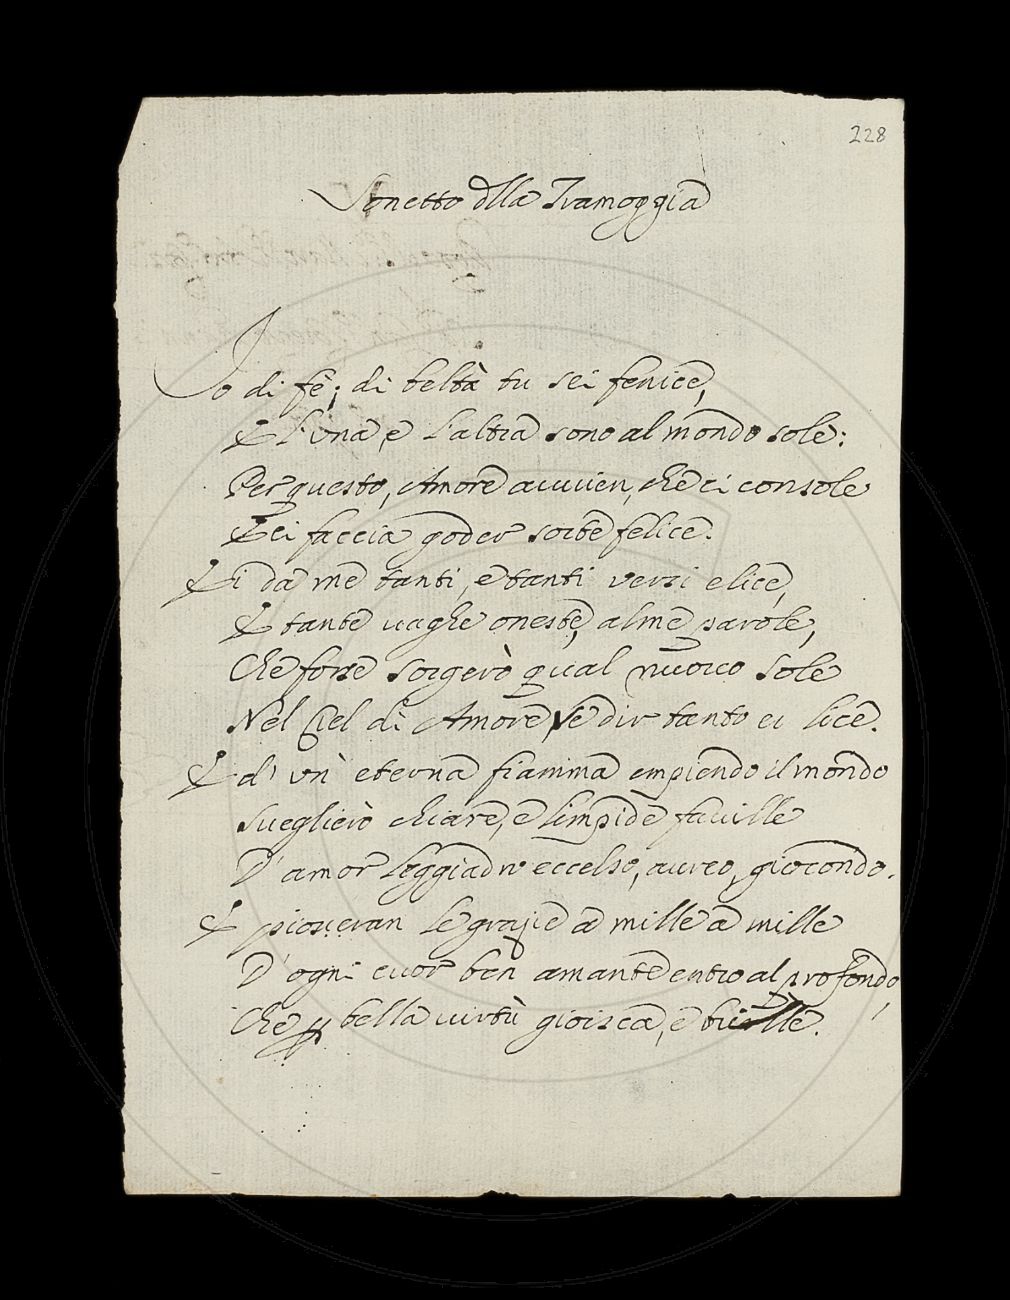 228
Sonetto dlla Tramoggia
Io di fè; di beltà tu sei fenice,
E l'una, e l'altra sono al mondo sole:
Per questo, Amore avvien, che ci console
E ci faccia goder sorte felice.
Ei da me tanti, e tanti versi elice,
E tante vaghe oneste, alme parole,
Che forse sorgerò qual nuovo sole
Nel Ciel di Amore, se dir tanto ei lice.
E d' un' eterna fiamma empiendo il mondo
Sveglierò chiare, e limpide faville
D' amor leggiadro eccelso, aureo, giocondo.
E pioveran le grazie a mille a mille
D' ogni cuor ben amante entro al profondo,
Che p bella virtù gioisca, e brille.